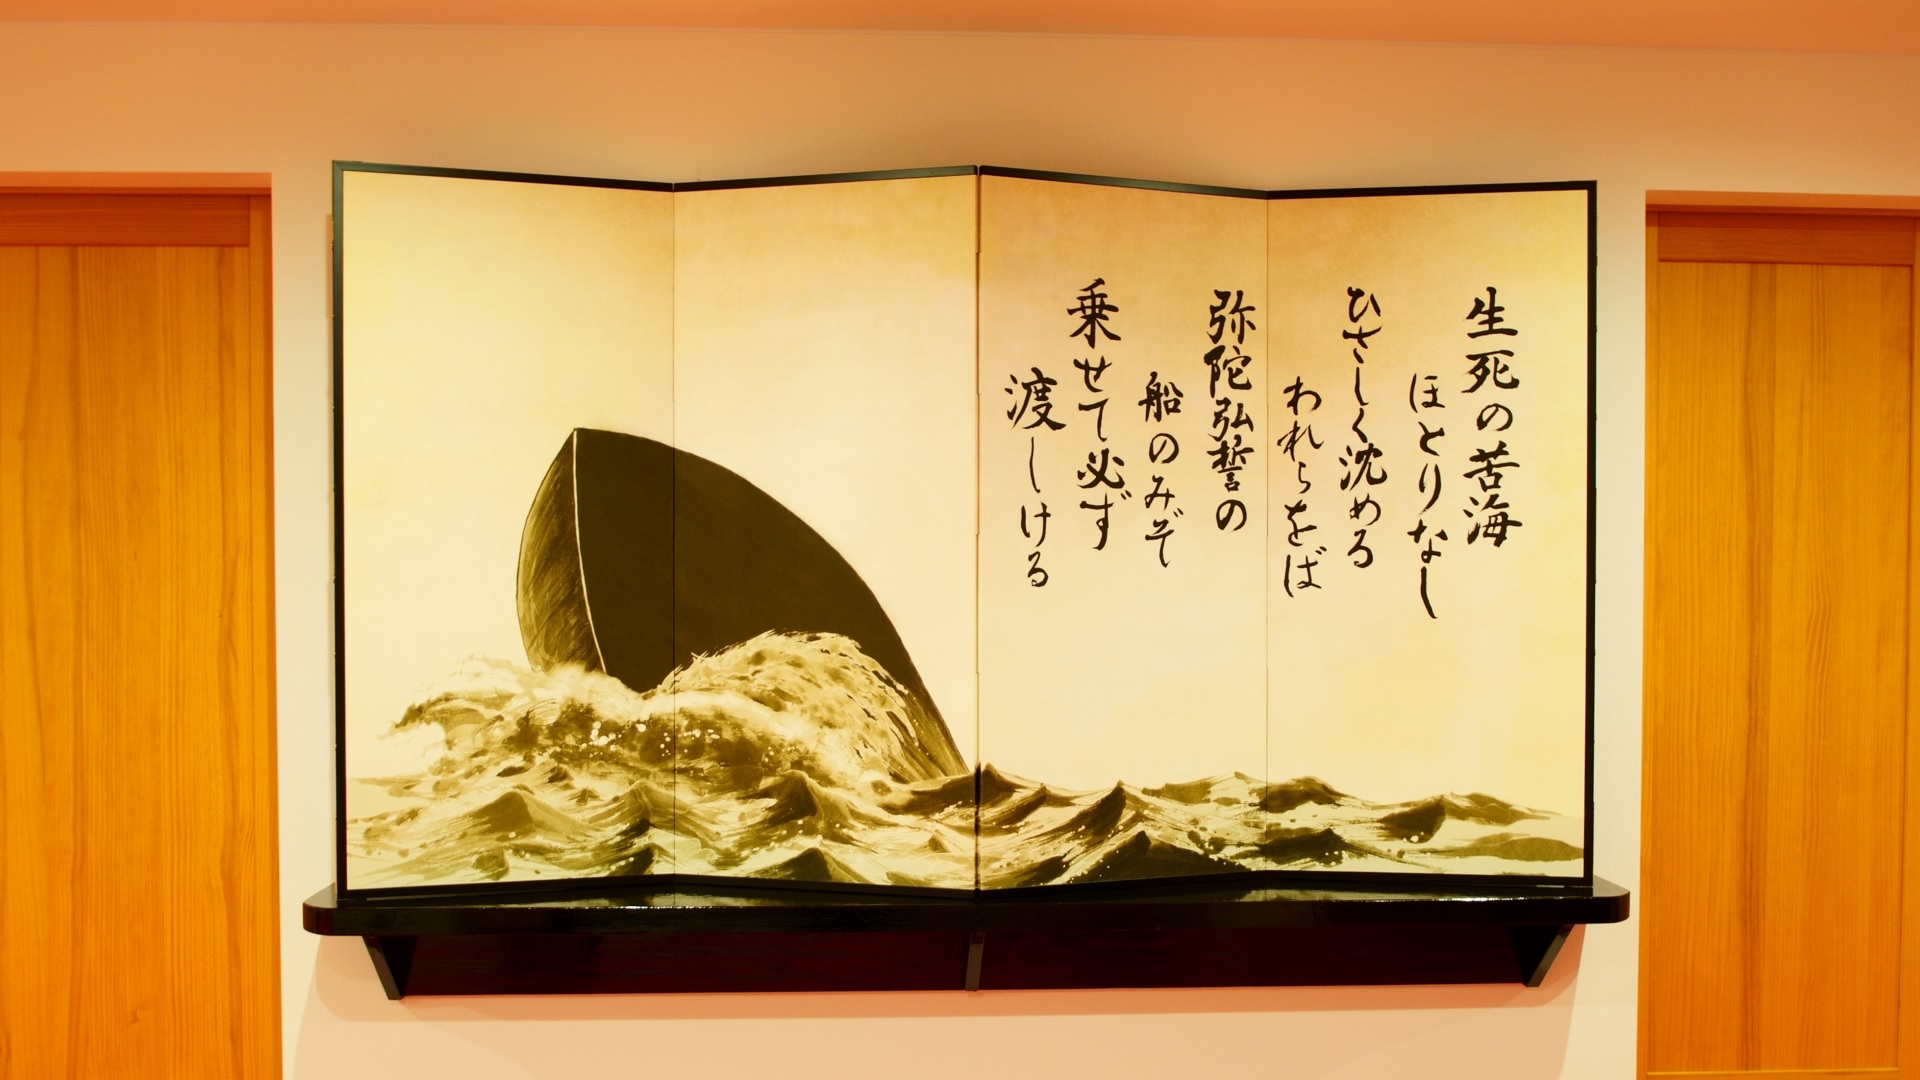 生死の苦海
ほとりなし
ひさしく沈める
われらをば
弥陀弘誓の
船のみぞ
乗せて必ず
渡しける